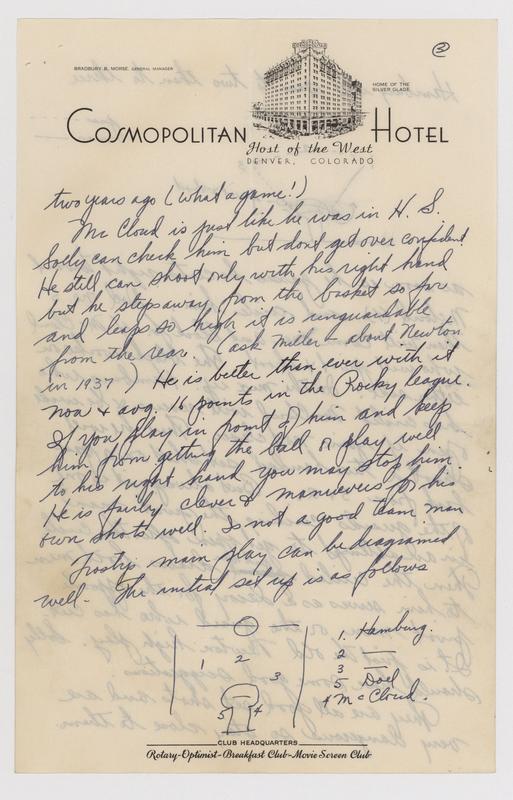 3
BRADBURY B. MORSE, GENERAL MANAGER
HOME OF THE
SILVER GLADE
COSMOPOLITAN HOTEL
Host of the West
DENVER, COLORADO
two years ago (what a game!)
Mc Cloud is just like he was in H. S.
Solly can check him but dont get over confident
He still can shoot only with his right hand
but he steps away from the basket so far
and leaps so high it is unguardable
from the rear. (ask Miller - about Newton
in 1937) He is better than ever with it
now & avg. 16 points in the Rocky league.
If you play in front of him and keep
him from getting the ball or play well
to his right hand you may stop him.
He is fairly clever & manuevers for his
own shots well. Is not a good team man
Frosty's main play can be diagramed
well. The initial set up is as follows
1 2 3
5 4
1. Hamburg.
2 —
3 —
5 Doel
4 McCloud.
CLUB HEADQUARTERS
Rotary-Optimist-Breakfast Club-Movie Screen Club